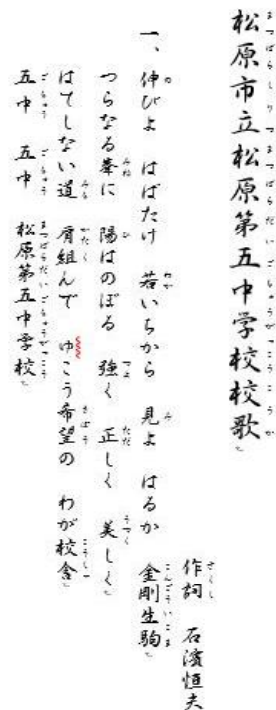 松原市立松原第五中学校校歌
作詞 石濱恒夫
一、伸びよ はばたけ 若いちから 見よ はるか 金剛生駒
つらなる峯に 陽はのぼる 強く 正しく 美しく
はてしない道 肩組んで ゆこう希望の わが校舎
五中 五中 松原第五中学校